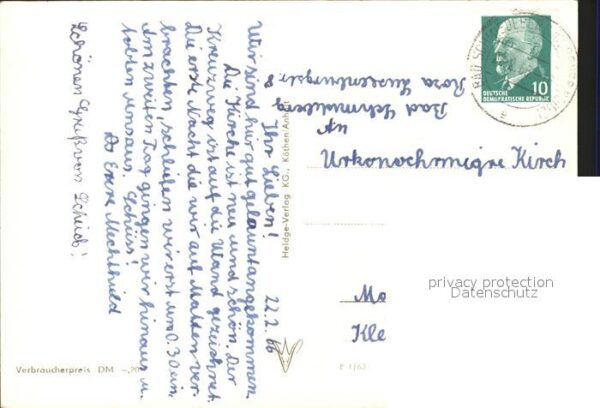 22.2.66
Ihr Lieben!
Wir sind hier gut gelaunt angekommen.
Die Kirche ist neu und schön. Der
Kreuzweg ist auf die Wand gezeichnet.
Die erste Nacht die wir auf Matten ver-
brachten, schliefen wir erst um 0.30 ein.
Am zweiten Tag gingen wir hinaus u.
tobten uns aus. Tschüss!
Eure Mechthild
Schönen Gruß von Scheid!
Verbraucherpreis DM –,20
Heldge-Verlag KG., Köthen/Anhalt
P 1/63
10
DEUTSCHE
DEMOKRATISCHE REPUBLIK
An
Urkonochrmigre Kirch
Bad Schmiedeberg
Rosa Luxenburgstr. 8
Mo
Kle
privacy protection
Datenschutz